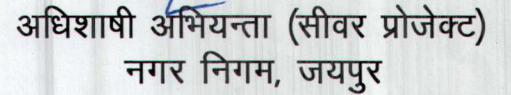 अधिशाषी अभियन्ता (सीवर प्रोजेक्ट)
नगर निगम, जयपुर